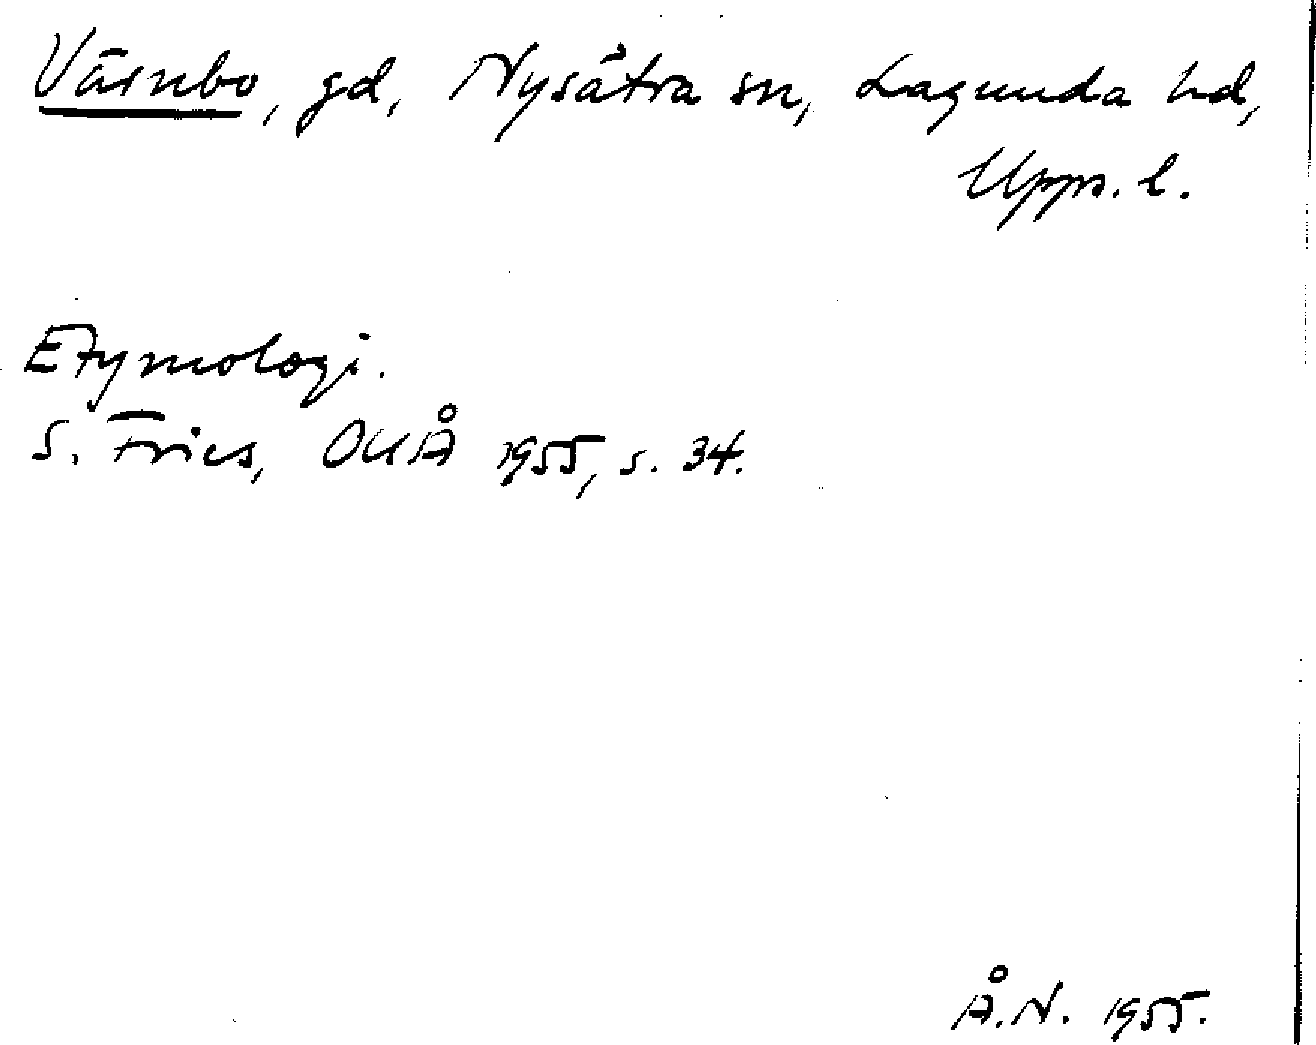 Väsnbo, gd, Nysätra sn, Lagunda hd,
Upps. l.
Etymologi.
S. Fries, OUÅ 1955, s. 34.
Å.N. 1955.